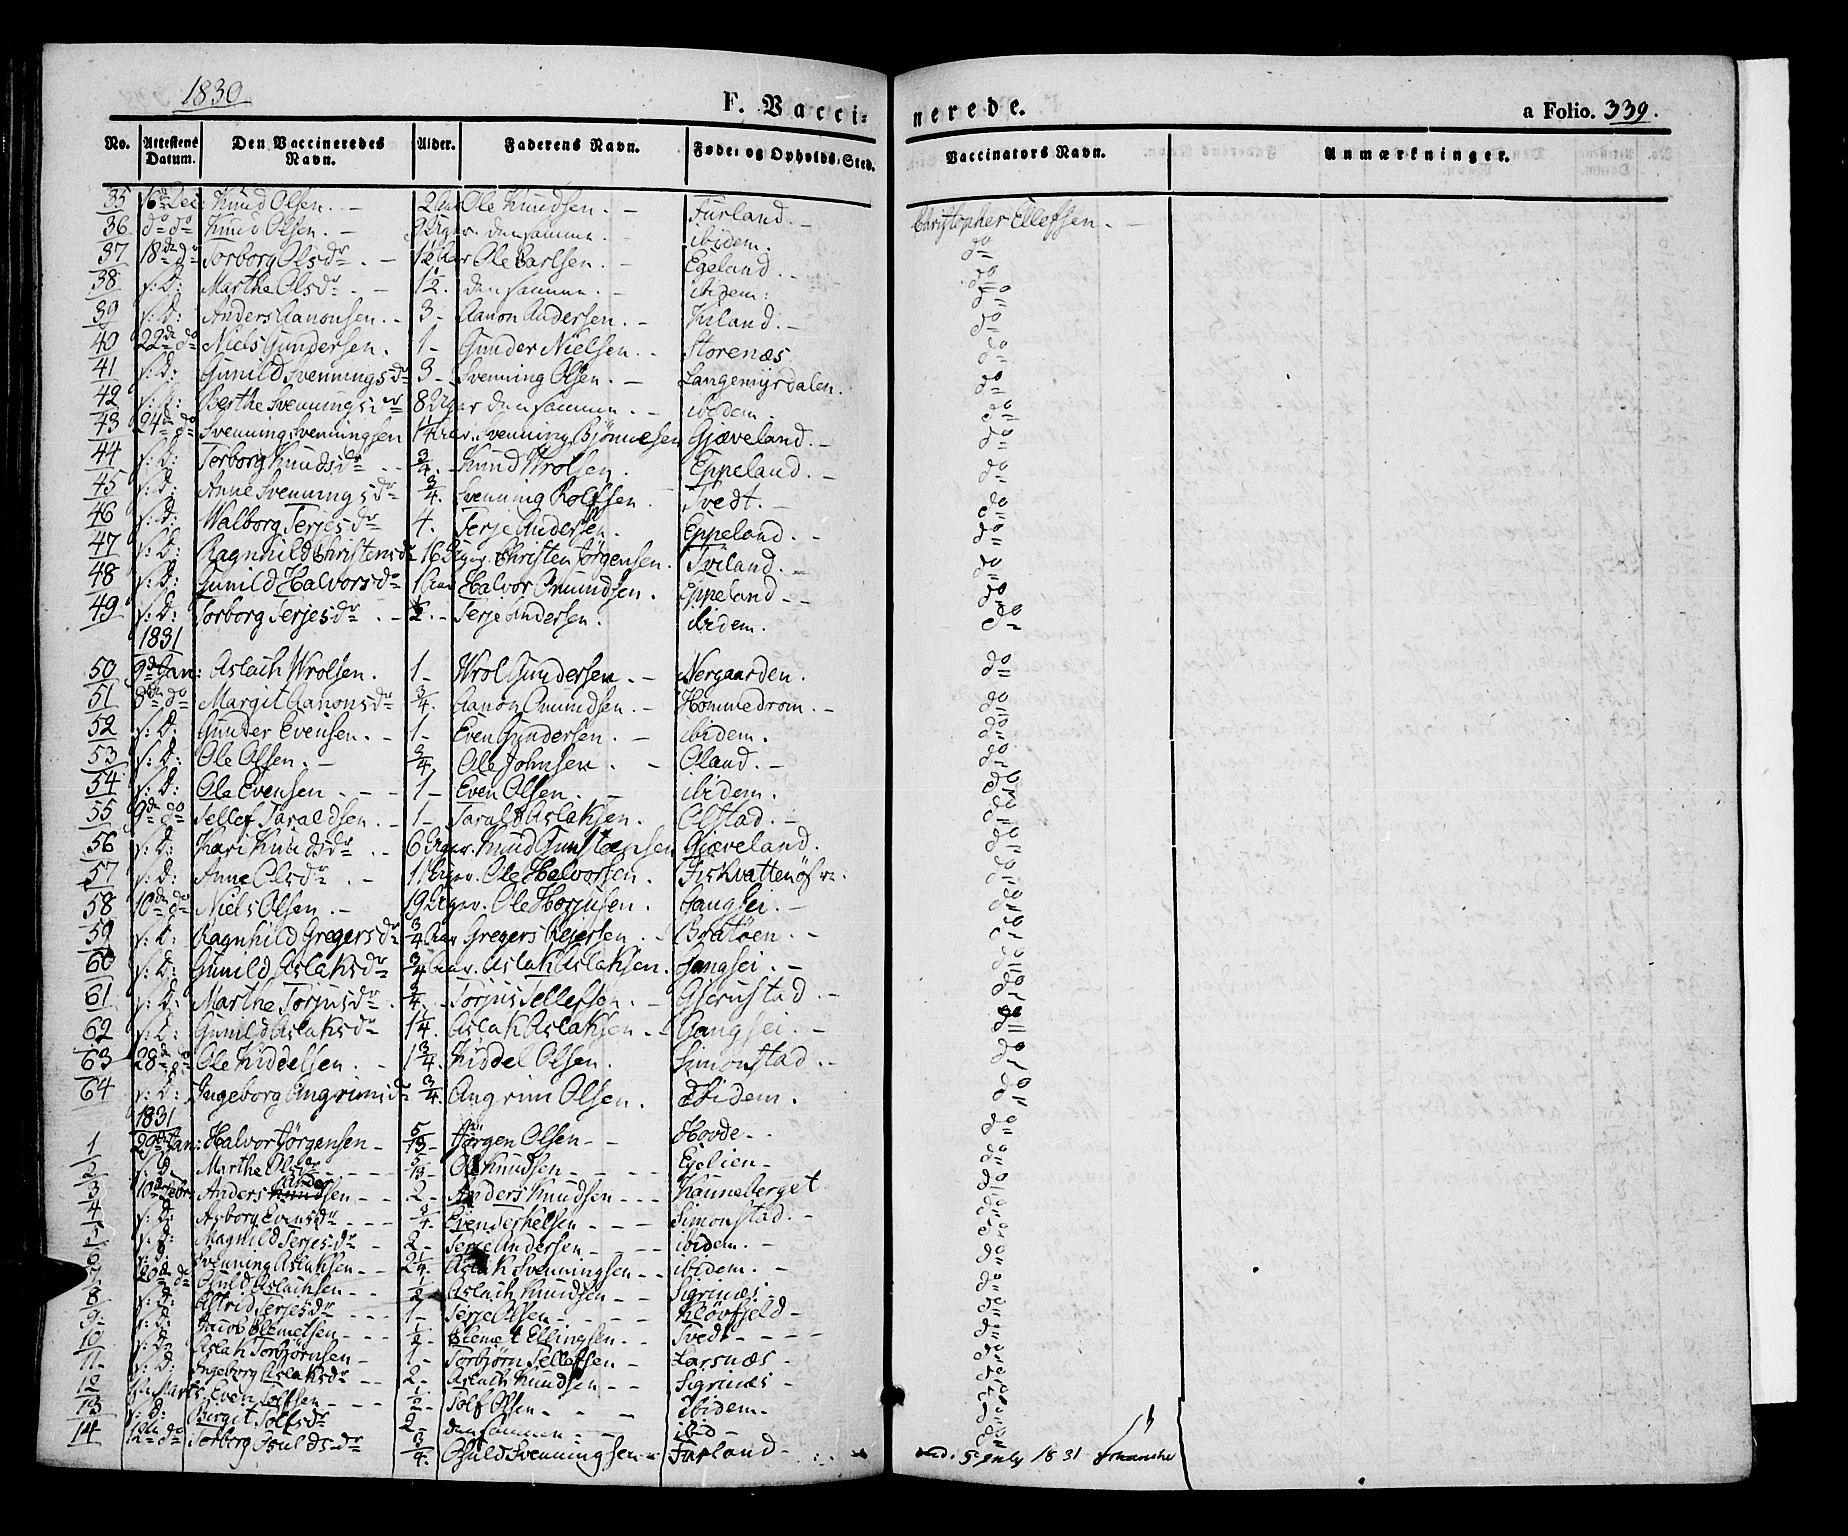 1830
F. Vaccinerede.
a Folio. 339.
No. Attestens Datum. Den Vaccineredes Navn. Alder. Faderens Navn. Føde- og Opholds-Sted. Vaccinators Navn. Anmærkninger.
35 16de Dec: Knud Olsen. 2 Aar Ole Knudsen. Furland. Christopher Ellefsen.
36 do do Knud Olsen. 9 Uger. den samme. ibidem. do
37 18de do Torborg Olsdr. 1½ Aar Ole Carlsen. Egeland. do
38 s: D: Marthe Olsdr. 1½. den samme. ibidem: do
39 s: D: Anders Aanonsen. 3 Aanon Andersen. do
40 22de do Niels Gundersen. 1 Gunder Nielsen. Storenæs do
41 s: D: Gunild Svenningsdr 3 Svenning Olsen. Langemyrdalen. do
42 s: D: Berthe Svenningsdr 8 Uger den samme. ibidem. do
43 24de do Svenning Svenningsen Aar. Svenning Bjørnnesen Gjæveland. do
44 s: D: Torborg Knudsdr ¾. Knud Wrolsen. Eppeland. do
45 s: D: Anne Svenningsdr ¾. Svenning Rolfsen Tvedt. do
46 s: D: Walborg Terjesdr 4. Terje Andersen. Eppeland. do
47 s: D: Ragnhild Christensdr 16 Uger. Christen Jørgensen. Tviland. do
48 s: D: Gunild Halvorsdr 1 Aar Halvor Omundsen. Eppeland do
49 s: D: Torborg Terjesdr Terje Andersen. ibidem. do
1831
50 Jan: Aslach Wrolsen. 1 Wrol Gundersen. Nergaarden. do
51 8de do Margit Aanonsdr ¾. Aanon Omundsen. Hommedrom. do
52 s: D: Gunder Evensen. 1 Even Gundersen. ibidem. do
53 s: D: Ole Olsen. ¾ Ole Johnsen. Oland. do
54 s: D: Ole Evensen 1 Even Olsen. ibidem. do
55 9de do Tellef Taraldsen. 1 Tarald Aslaksen. Olstad. do
56 s: D: Kari Knudsdr 6 Uger. Knud Gunstensen Gjæveland. do
57 s: D: Anne Olsdr. Uger. Ole Halvorsen. do
58 10de do Niels Olsen. 19 Uger. Ole Horjusen. Gangsei. do
59 s: D: Ragnhild Gregersdr ¾ Aar Gregers Reiersen. Bratøen. do
60 s: D: Gunild Aslaksdr ¾ Aar. Aslak Aslaksen. Gangsei. do
61 s: D: Marthe Torjusdr. ¾. Torjus Tellefsen. Gjerustad. do
62 s: D: Gunild Aslaksdr 1¼. Aslak Aslaksen. Gangsei. do
63 28de do Ole Kiddelsen. 1¾. Kiddel Olsen. Simonstad. do
64 s: D: Ingeborg Angrimsdr ¾. Angrim Olsen. Ibidem. do
1831
1 29de Jan: Halvor Jørgensen Jørgen Olsen Hovde. do
2 s: D. Marthe Olsdr Ole Knudsen Egelien do
3 10de Febr: Anders Andersen 2 Anders Knudsen Kanneberget do
4 s: D: Asborg Evensdr ¾. Even Terkelsen Simonstad. do
5 s: D: Magnild Terjesdr 2 Terje Andersen ibidem. do
6 s: D: Svenning Aslaksen 2¼. Aslak Svenningsen ibidem. do
7 do Aslachsen ½ Aslach Knudsen Sigrinæs do
8 s: D: Astrid Terjesdr 1 Terje Olsen Kløvfjeld do
9 s: D: Jacob Clemetsen ½ Clemet Ellingsen. Tvedt do
10 s: D: Aslak Torbjørnsen 1 Torbjørn Tellefsen Larsnæs do
11 s: D: Ingeborg Aslaksdr 2 Aslach Knudsen Sigrinæs do
12 Marts Even Tolfsen ½ Tolf Olsen ibidem. do
13 s: D: Birgit Tolfsdr 2 den samme ibid do
14 12te do Torborg Osuldsdr ¾. Osuld Svenningsen Furland do
5 July 1831